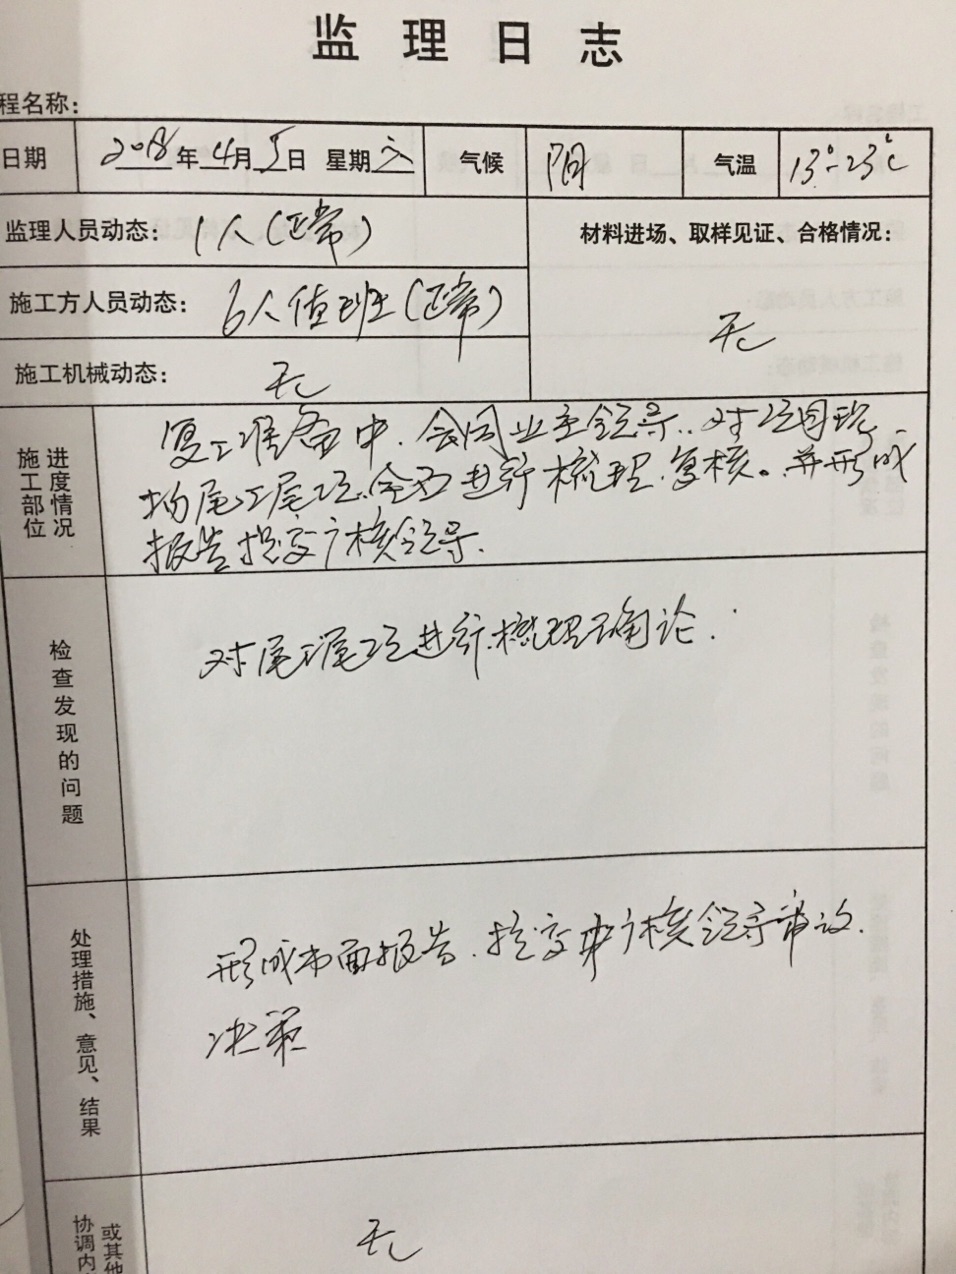 监理日志
程名称：
日期 2018年4月5日 星期 气候 阴 气温 13°-23℃
监理人员动态： 1人（正常）
材料进场、取样见证、合格情况：
施工方人员动态： 6人值班（正常）
无
施工机械动态： 无
进度情况
施工部位
复工准备中，会同业主领导，对项目现
场尾工尾项全面进行梳理，复核。并形成
报告提交广核领导.
检查发现的问题
对尾工尾项进行梳理确论.
处理措施、意见、结果
形成书面报告，提交中广核领导审议，
决策
或其他
协调内
无